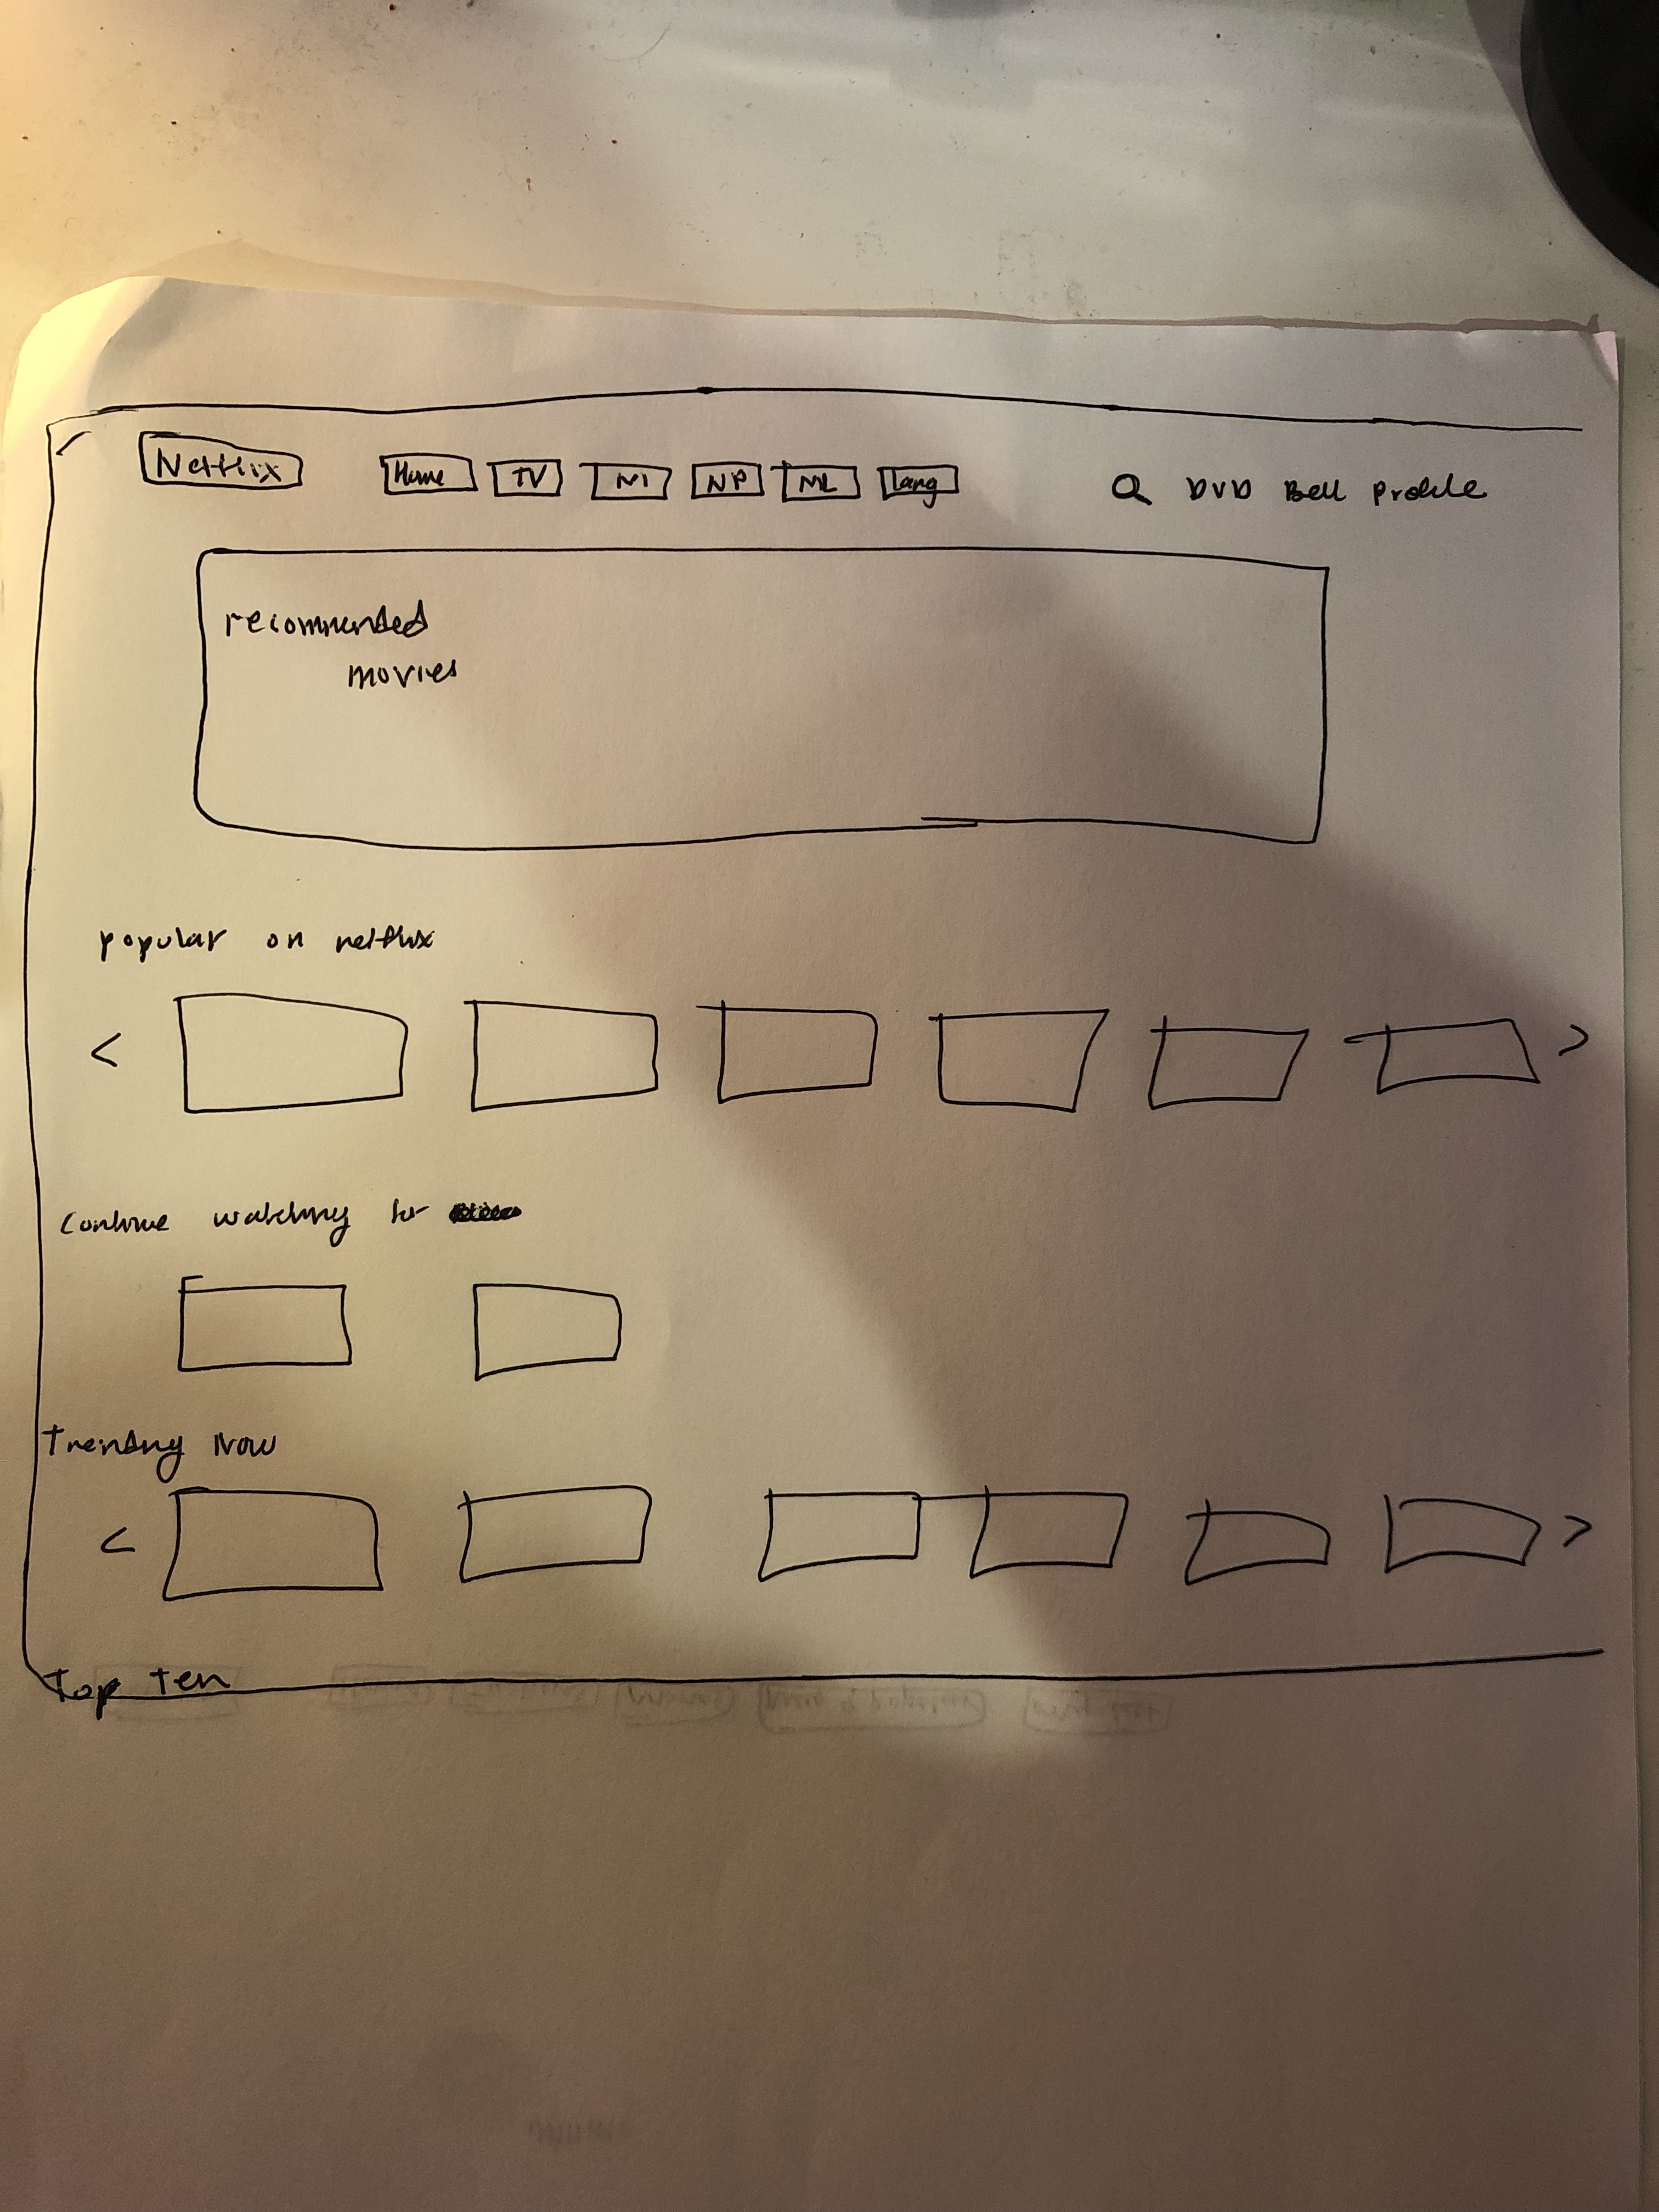 Netflix Home TV M NP ML Lang DVD Bell Profile
recommended
movies
popular on netflix
<
>
Continue watching for
Trending Now
<
>
Top Ten